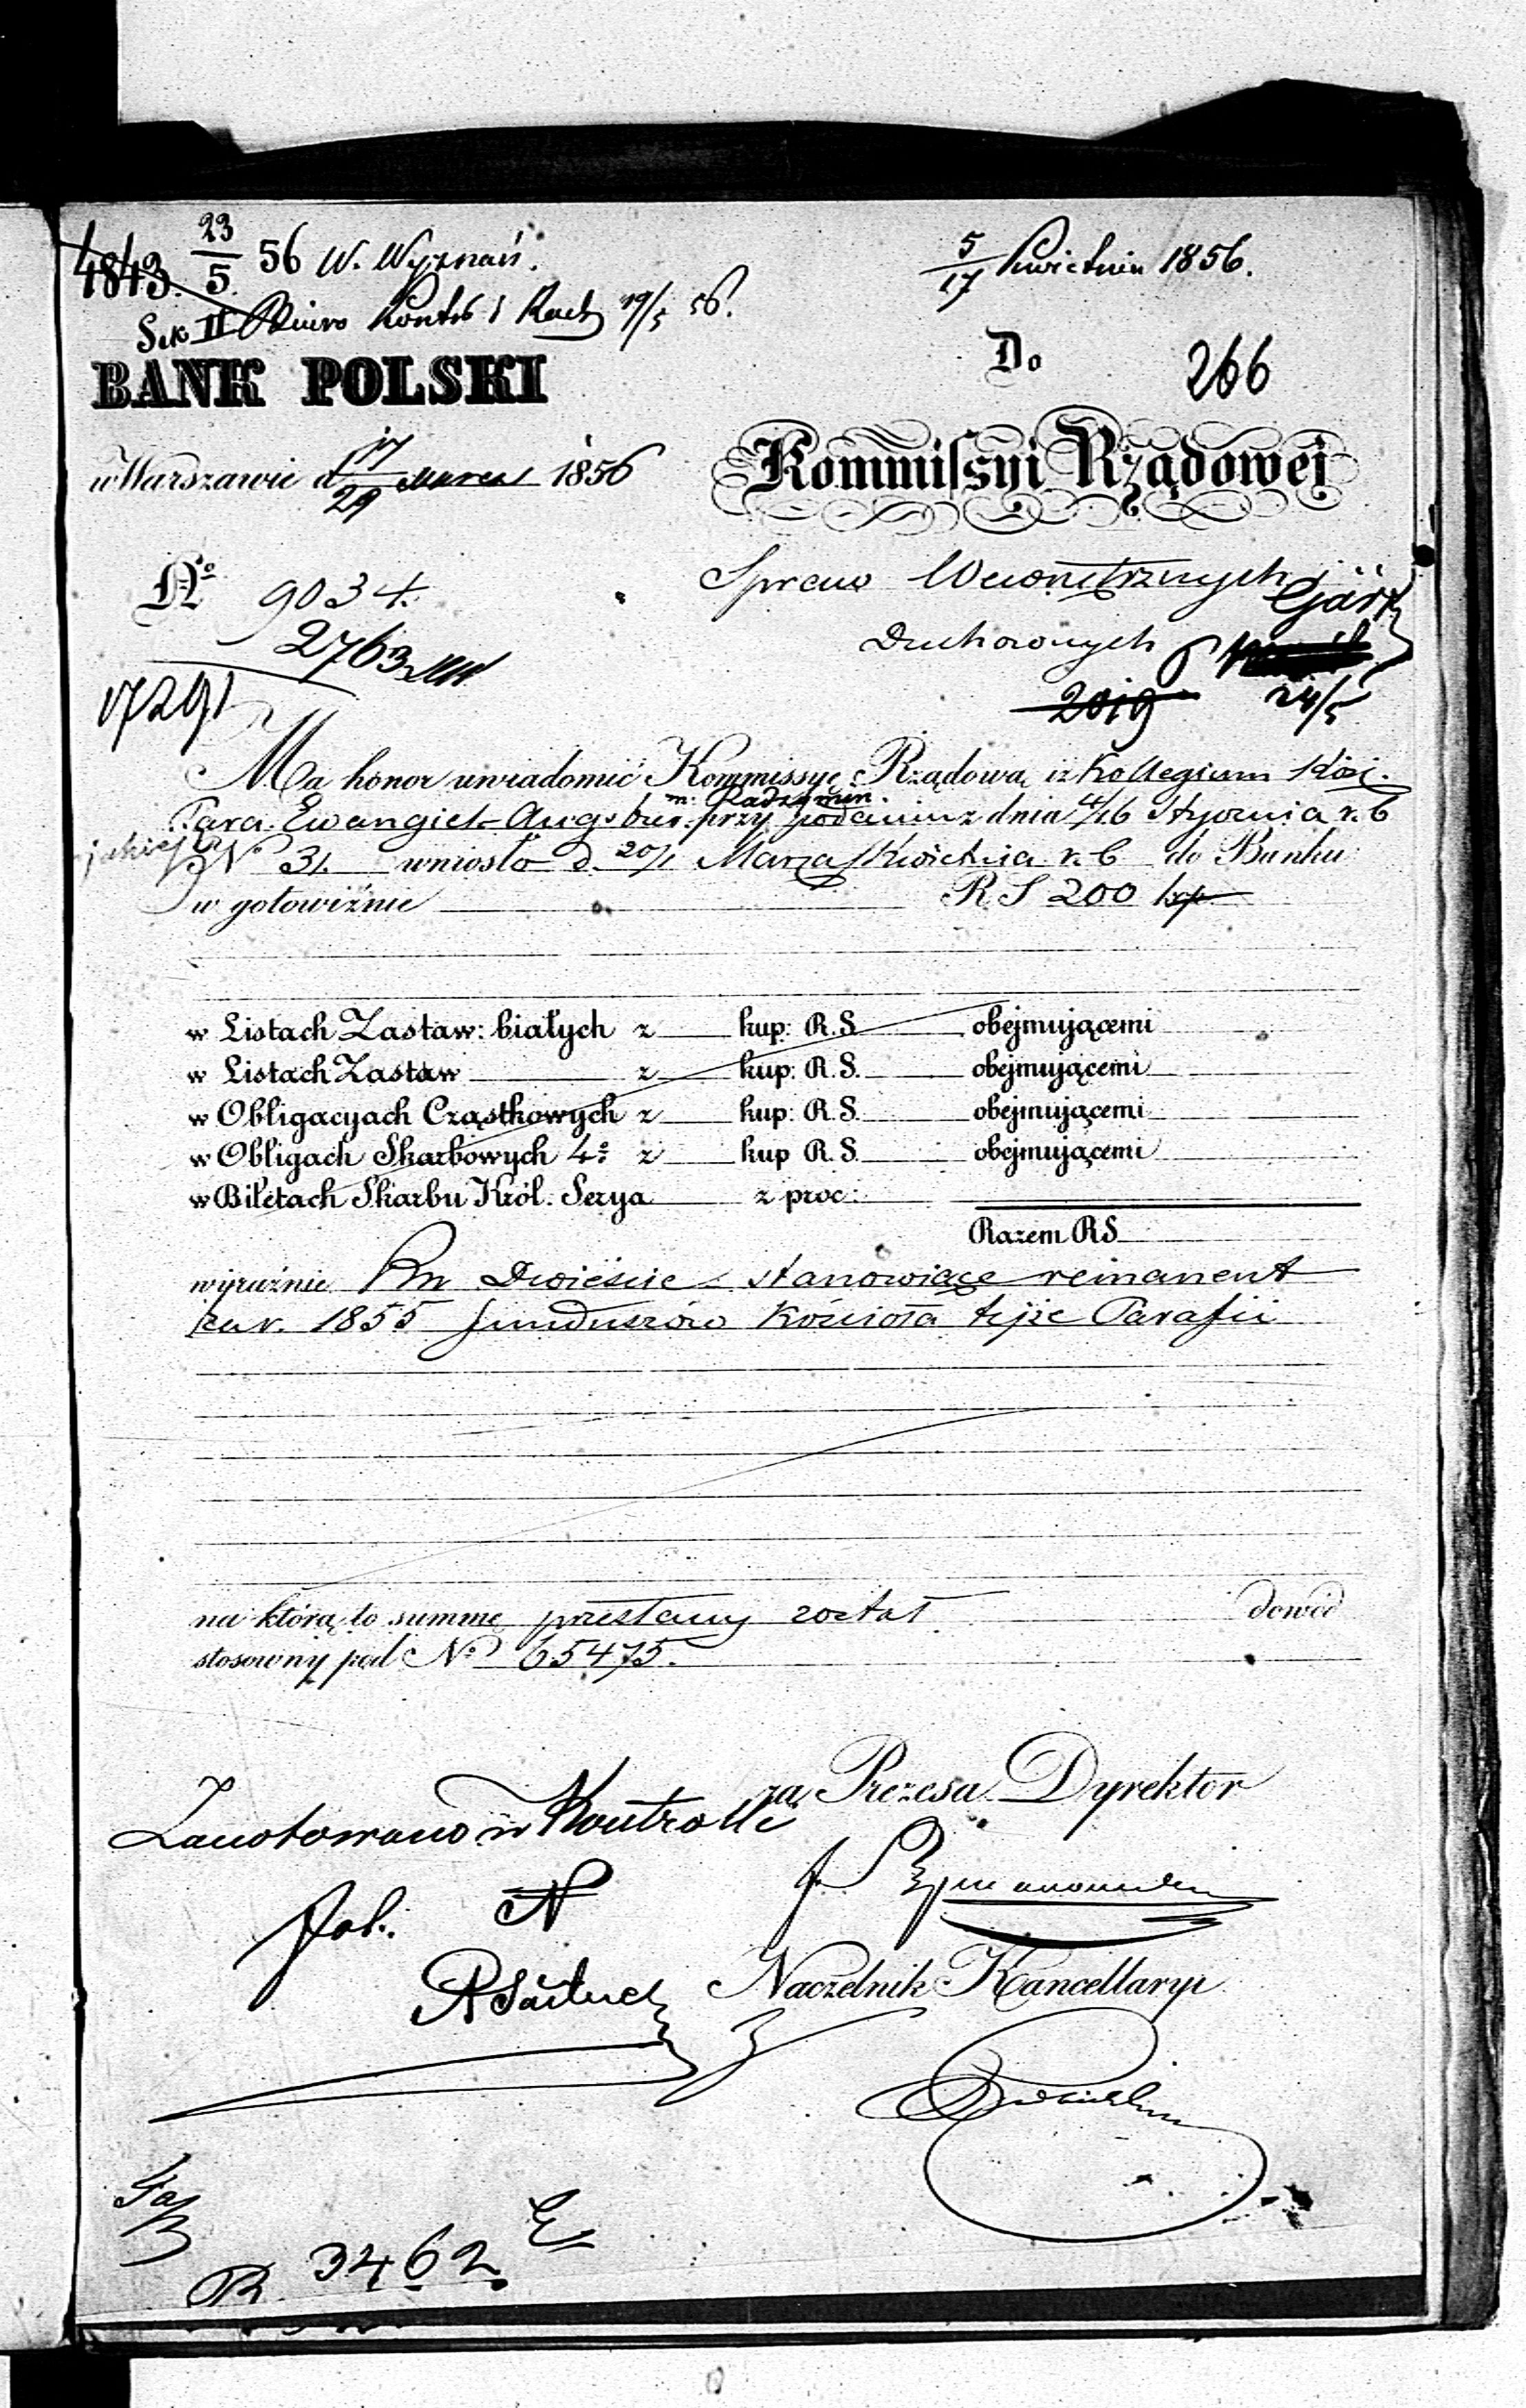 4843. 23/5 56 W. Wyznań.
5/17 Kwietnia 1856.
Sek II Biuro Kontr i Rach 19/5 56.
BANK POLSKI
Do
266
w Warszawie d 17/29 Marca 1856
Kommissyi Rządowej
No 9034.
2763
17291
Spraw Wewnętrznych i
Duchownych
2019
24/5
Ma honor uwiadomić Kommissyę Rządową iż Kollegium Kość.
m. Radzymin.
Para. Ewangiel-Augsbur. przy podaniu z dnia 4/16 Stycznia r. b
No 31. wniosło d. 20/1 Marca/Kwietnia r. b do Banku
w gotowiźnie RS 200 kop
w Listach Zastaw: białych z kup: R.S. obejmującemi
w Listach Zastaw z kup: R.S. obejmującemi
w Obligacyach Cząstkowych z kup: R.S. obejmującemi
w Obligach Skarbowych 4% z kup R.S. obejmującemi
w Biletach Skarbu Król. Serya z proc:
Razem RS
wyraźnie Rsr Dwieście stanowiące remanent
za r. 1855 funduszów Kościoła tejże Parafii
na którą to summę przesłany został dowód
stosowny pod No 65475.
za Prezesa Dyrektor
Zanotowano w Kontrolli
fol. N
Naczelnik Kancellaryi
R 3462